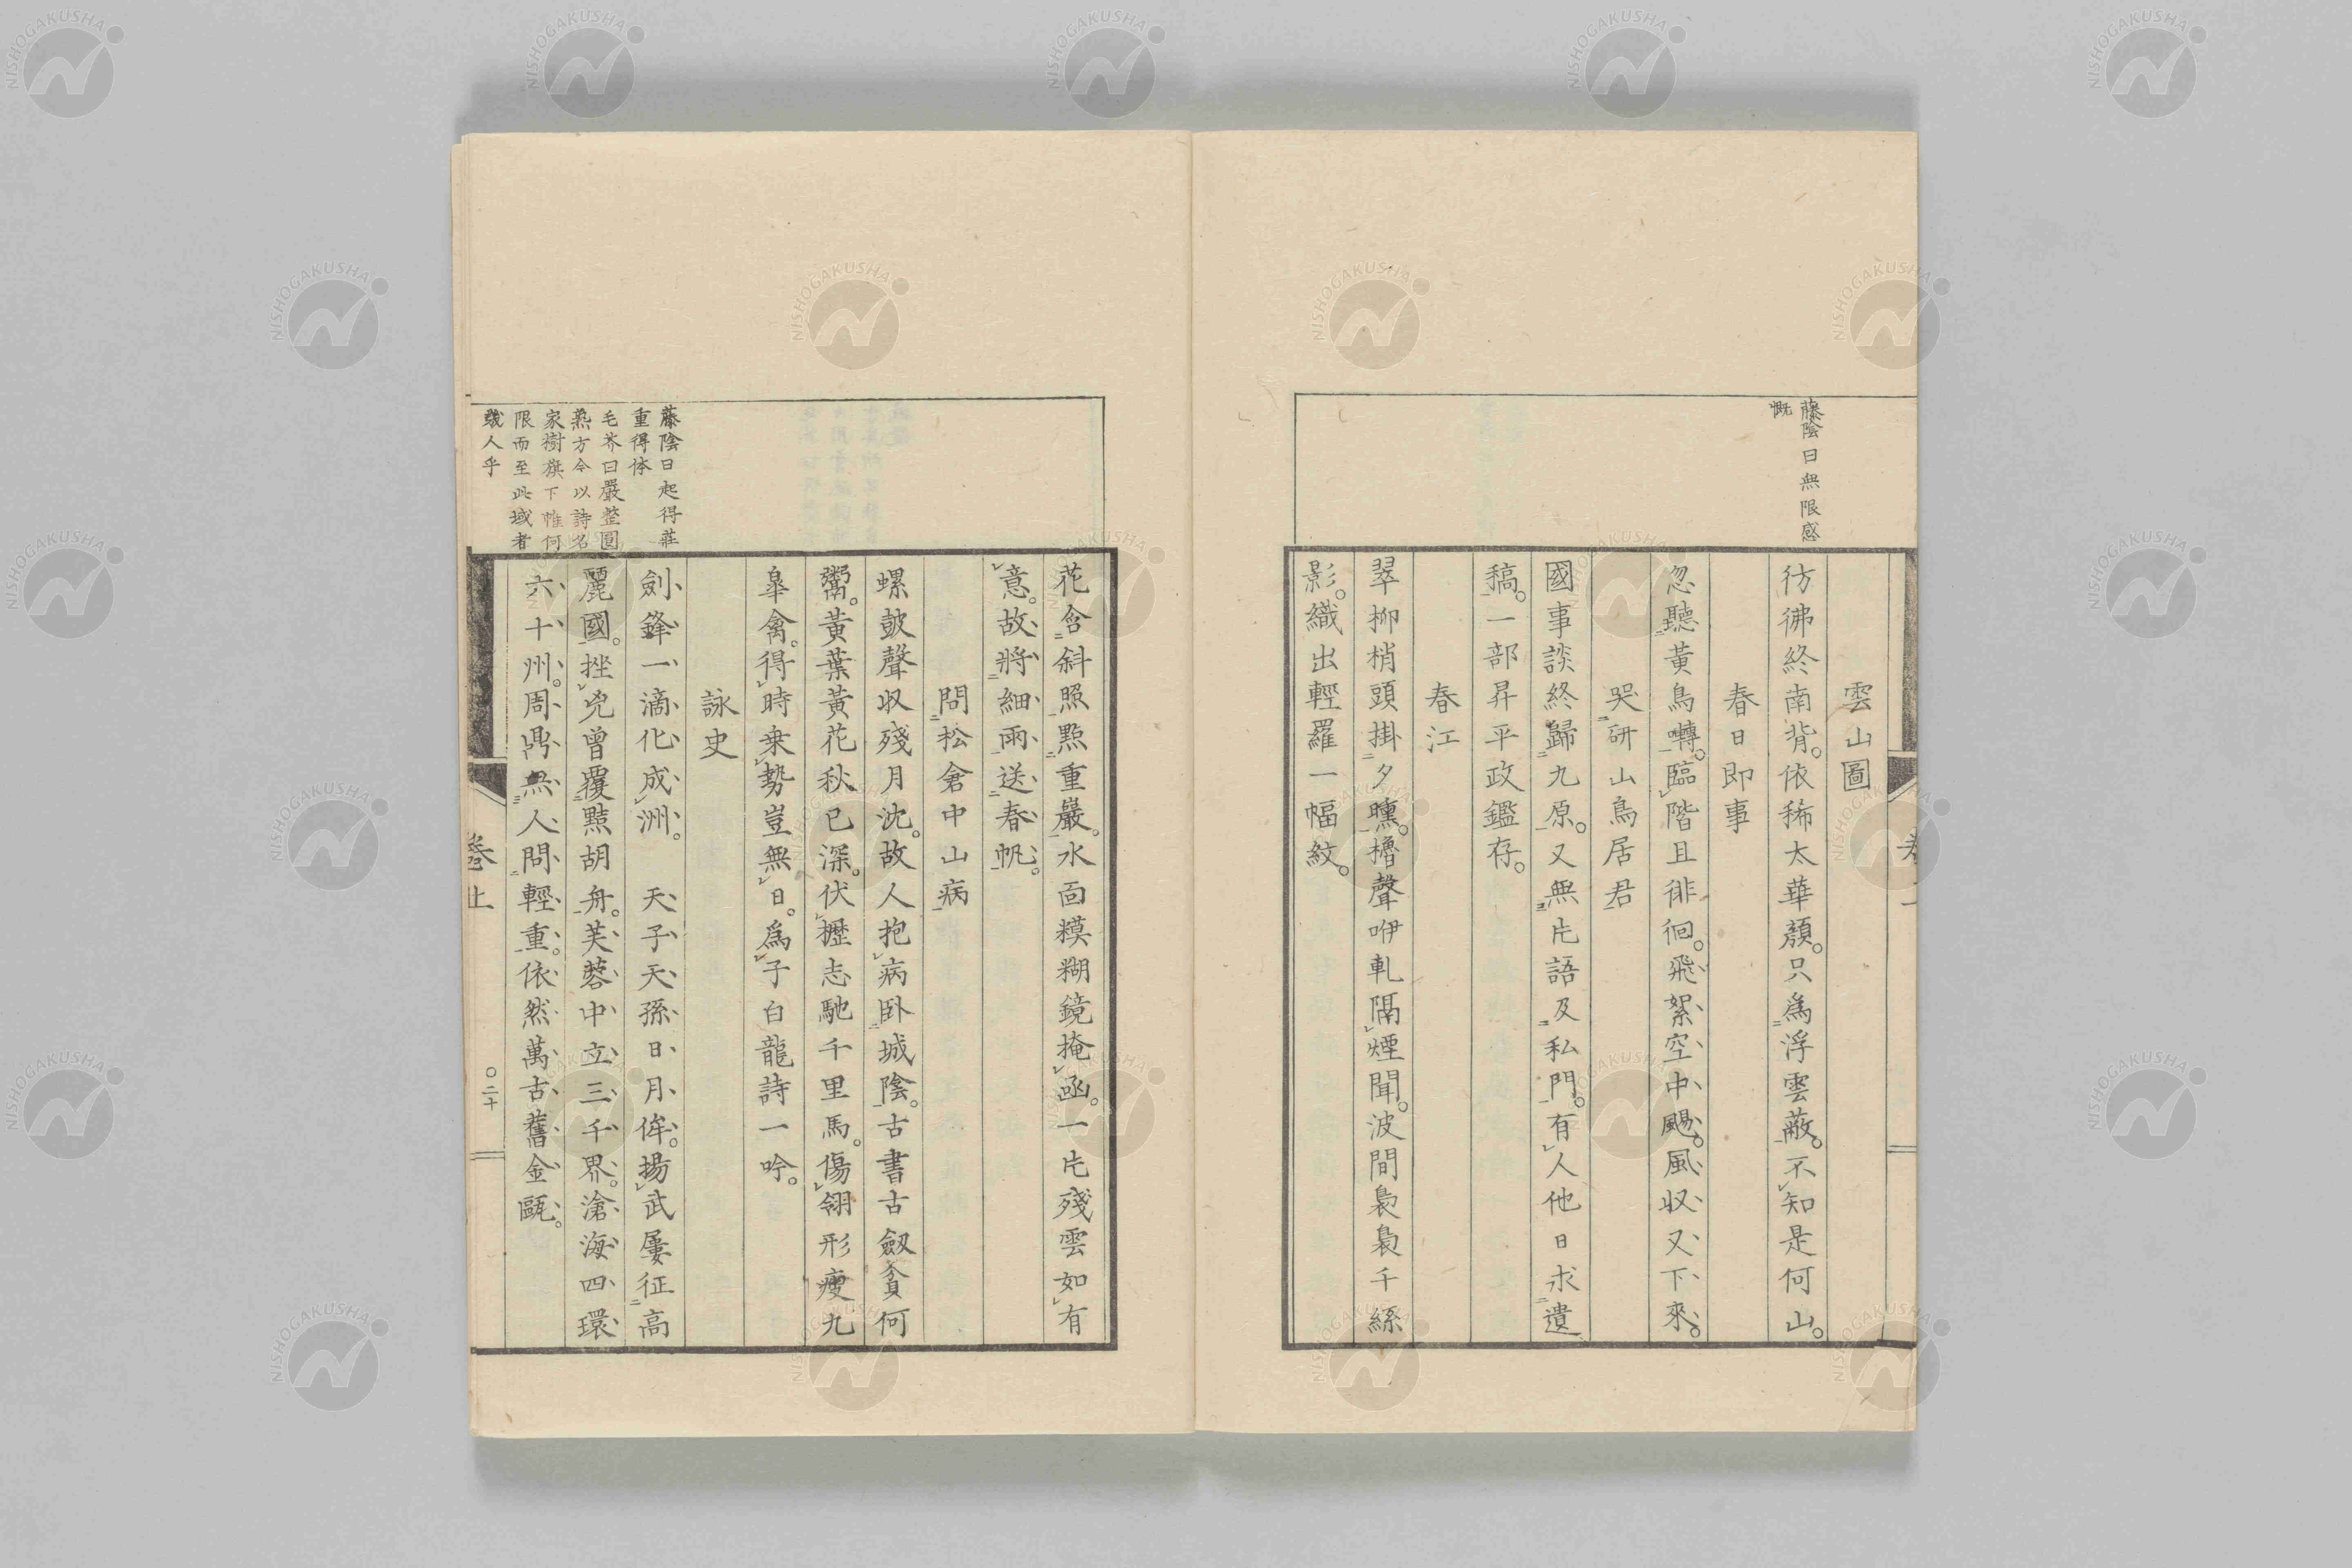 藤陰曰無限感
慨
雲山圖
彷彿終南背。依稀太華顏。只爲浮雲蔽。不知是何山。
春日即事
忽聽黃鳥囀。臨階且徘徊。飛絮空中颺。風收又下來。
哭研山鳥居君
國事談終歸九原。又無片語及私門。有人他日求遺
稿。一部昇平政鑑存。
春江
翠柳梢頭掛夕曛。櫓聲咿軋隔煙聞。波間裊裊千絲
影。織出輕羅一幅紋。
花含斜照點重巖。水面糢糊鏡掩函。一片殘雲如有
意。故將細雨送春帆。
問松倉中山病
螺皷聲收殘月沈。故人抱病臥城陰。古書古劔貧何
鬻。黃葉黃花秋已深。伏櫪志馳千里馬。傷翎形瘦九
皐禽。得時乘勢豈無日。爲子白龍詩一吟。
詠史
藤陰曰起得莊
重得体
毛芥曰嚴整圓
熟方今以詩名
家樹旗下帷何
限而至此域者
幾人乎
劍鋒一滴化成洲。天子天孫日月侔。揚武屢征高
麗國。挫兇曾覆黠胡舟。芙蓉中立三千界。滄海四環
六十州。周鼎無人問輕重。依然萬古舊金甌。
卷上
〇二十